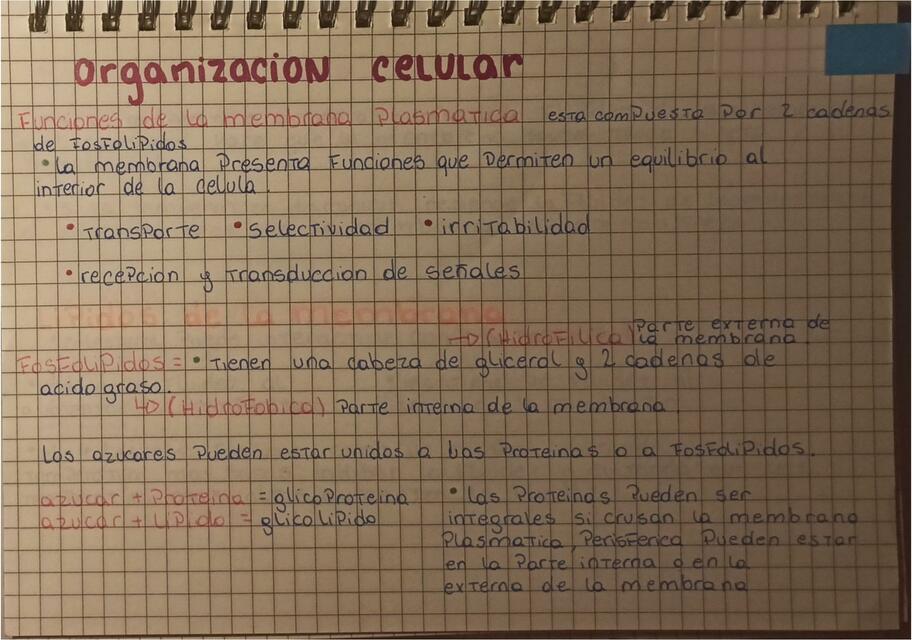 organizacion celular
Funciones de la membrana Plasmatica esta compuesta por 2 cadenas
de Fosfolipidos
• La membrana Presenta Funciones que Permiten un equilibrio al
interior de la celula.
• Transporte • selectividad • irritabilidad
• recepcion y Transduccion de señales
de la membrana
→ (Hidrofilica) Parte externa de
la membrana.
Fosfolipidos = • Tienen una cabeza de glicerol y 2 cadenas de
acido graso.
↳ (Hidrofobica) Parte interna de la membrana.
Los azucares Pueden estar unidos a Las Proteinas o a Fosfolipidos.
azucar + Proteina = glicoProteina
azucar + Lipido = glicolipido
• Las Proteinas Pueden ser
integrales si crusan la membrana
Plasmatica, Perisferica Pueden estar
en la Parte interna o en la
externa de la membrana